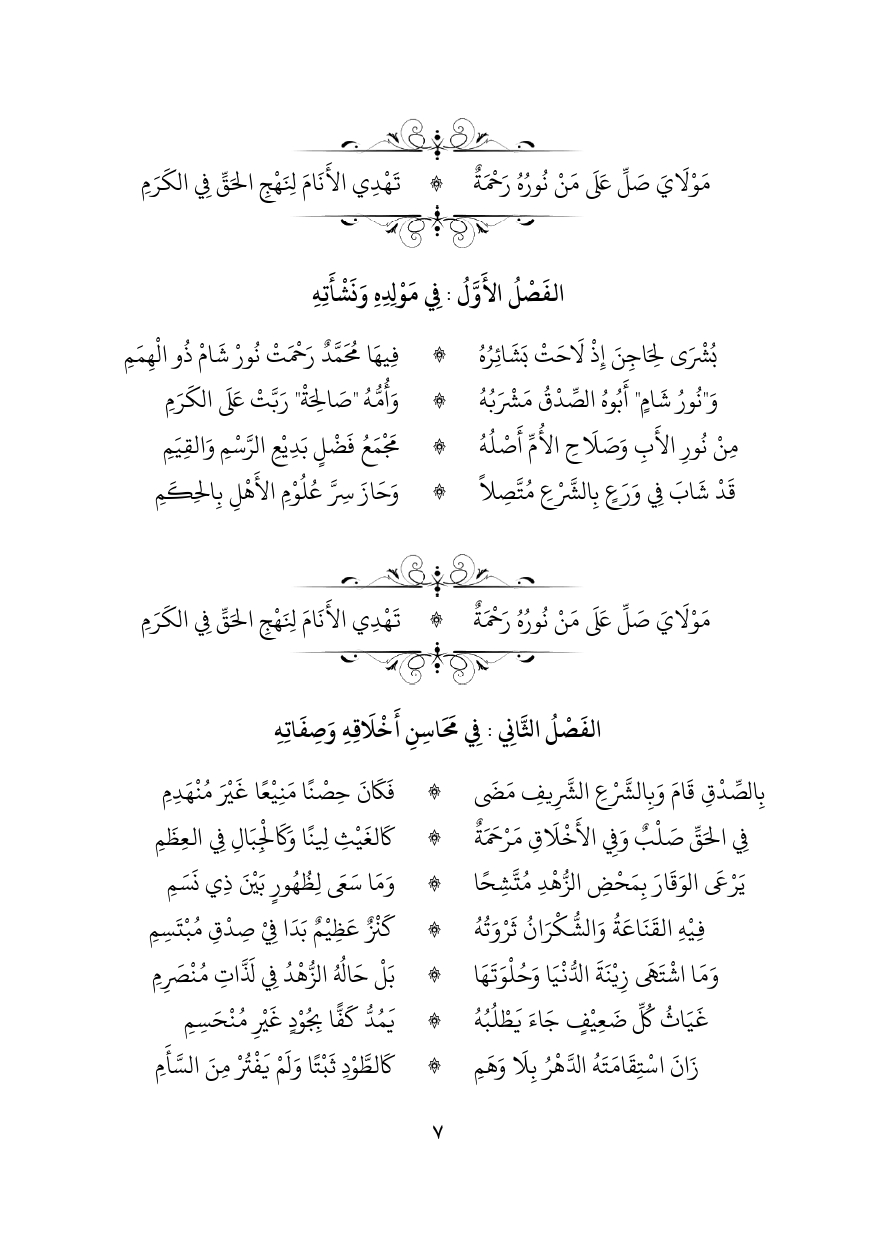 مَوْلَايَ صَلِّ عَلَى مَنْ نُورُهُ رَحْمَةٌ ۞ تَهْدِي الأَنَامَ لِنَهْجِ الحَقِّ فِي الكَرَمِ
الفَصْلُ الأَوَّلُ : فِي مَوْلِدِهِ وَنَشْأَتِهِ
بُشْرَى لِحَاجِنَ إِذْ لَاحَتْ بَشَائِرُهُ ۞ فِيهَا مُحَمَّدٌ رَحْمَتْ نُورْ شَامْ ذُو الْهِمَمِ
وَ"نُورُ شَامٍ" أَبُوهُ الصِّدْقُ مَشْرَبُهُ ۞ وَأُمُّهُ "صَالِحَةْ" رَبَّتْ عَلَى الكَرَمِ
مِنْ نُورِ الأَبِ وَصَلَاحِ الأُمِّ أَصْلُهُ ۞ مَجْمَعُ فَضْلٍ بَدِيْعِ الرَّسْمِ وَالقِيَمِ
قَدْ شَابَ فِي وَرَعٍ بِالشَّرْعِ مُتَّصِلاً ۞ وَحَازَ سِرَّ عُلُوْمِ الأَهْلِ بِالحِكَمِ
مَوْلَايَ صَلِّ عَلَى مَنْ نُورُهُ رَحْمَةٌ ۞ تَهْدِي الأَنَامَ لِنَهْجِ الحَقِّ فِي الكَرَمِ
الفَصْلُ الثَّانِي : فِي مَحَاسِنِ أَخْلَاقِهِ وَصِفَاتِهِ
بِالصِّدْقِ قَامَ وَبِالشَّرْعِ الشَّرِيفِ مَضَى ۞ فَكَانَ حِصْنًا مَنِيْعًا غَيْرَ مُنْهَدِمِ
فِي الحَقِّ صَلْبٌ وَفِي الأَخْلَاقِ مَرْحَمَةٌ ۞ كَالغَيْثِ لِينًا وَكَالْجِبَالِ فِي العِظَمِ
يَرْعَى الوَقَارَ بِمَحْضِ الزُّهْدِ مُتَّشِحًا ۞ وَمَا سَعَى لِظُهُورٍ بَيْنَ ذِي نَسَمِ
فِيْهِ القَنَاعَةُ وَالشُّكْرَانُ ثَرْوَتُهُ ۞ كَنْزٌ عَظِيْمٌ بَدَا فِيْ صِدْقِ مُبْتَسِمِ
وَمَا اشْتَهَى زِيْنَةَ الدُّنْيَا وَحُلْوَتَهَا ۞ بَلْ حَالُهُ الزُّهْدُ فِي لَذَّاتِ مُنْصَرِمِ
غَيَاثُ كُلِّ ضَعِيْفٍ جَاءَ يَطْلُبُهُ ۞ يَمُدُّ كَفًّا بِجُوْدٍ غَيْرِ مُنْحَسِمِ
زَانَ اسْتِقَامَتَهُ الدَّهْرُ بِلَا وَهَمِ ۞ كَالطَّوْدِ ثَبْتًا وَلَمْ يَفْتُرْ مِنَ السَّأَمِ
٧